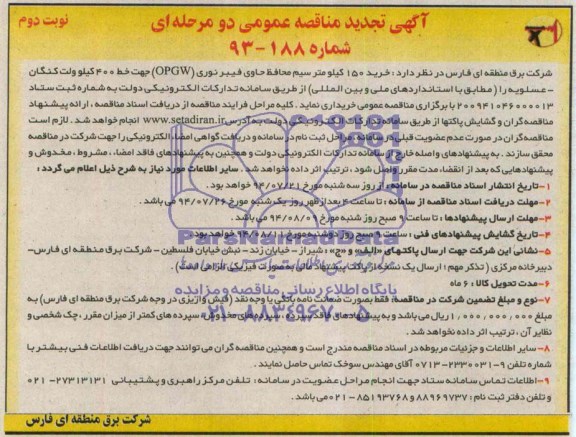 آگهی تجدید مناقصه عمومی دو مرحله ای
نوبت دوم
شماره ۱۸۸-۹۳
شرکت برق منطقه ای فارس در نظر دارد: خرید ۱۵۰ کیلو متر سیم محافظ حاوی فیبر نوری (OPGW) جهت خط ۴۰۰ کیلو ولت کنگان
-عسلویه را (مطابق با استانداردهای ملی و بین المللی) از طریق سامانه تدارکات الکترونیکی دولت به شماره ثبت ستاد
۲۰۰۹۴۱۰۴۶۰۰۰۰۱۳ با برگزاری مناقصه عمومی خریداری نماید. کلیه مراحل فرایند مناقصه از دریافت اسناد مناقصه، ارائه پیشنهاد
مناقصه گران و گشایش پاکتها از طریق سامانه تدارکات الکترونیکی دولت به آدرس www.setadiran.ir انجام خواهد شد. لازم است
مناقصه گران در صورت عدم عضویت قبلی در سامانه، مراحل ثبت نام در سامانه و دریافت گواهی امضاء الکترونیکی را جهت شرکت در مناقصه
محقق سازند. به پیشنهادهای واصله خارج از سامانه تدارکات الکترونیکی دولت و همچنین به پیشنهادهای فاقد امضاء، مشروط، مخدوش و
پیشنهادهایی که بعد از انقضاء مدت مقرر واصل شود، ترتیب اثر داده نخواهد شد. سایر اطلاعات مورد نیاز به شرح ذیل اعلام می گردد:
۱-تاریخ انتشار اسناد مناقصه در سامانه، از روز سه شنبه مورخ ۹۴/۰۷/۲۱ خواهد بود.
۲-مهلت دریافت اسناد مناقصه از سامانه: تا ساعت ۴ بعد از ظهر روز یک شنبه مورخ ۹۴/۰۷/۲۶ می باشد.
۳-مهلت ارسال پیشنهادها: تا ساعت ۹ صبح روز شنبه مورخ ۹۴/۰۸/۰۹ می باشد.
۴-تاریخ گشایش پیشنهادهای فنی: ساعت ۹ صبح روز دوشنبه مورخ ۹۴/۰۸/۱۱ خواهد بود.
۵-نشانی این شرکت جهت ارسال پاکتهای «الف» و «ج»: شیراز - خیابان زند - نبش خیابان فلسطین - شرکت برق منطقه ای فارس-
دبیرخانه مرکزی (تذکر مهم: ارسال یک نسخه از پاکت پیشنهاد مالی به صورت فیزیکی الزامی است).
۶-مدت تحویل کالا: ۶ ماه
۷-نوع و مبلغ تضمین شرکت در مناقصه: فقط بصورت ضمانت نامه بانکی یا وجه نقد (فیش واریزی در وجه شرکت برق منطقه ای فارس) به
مبلغ ۱,۰۰۰,۰۰۰,۰۰۰ ریال می باشد و به پیشنهادهای فاقد سپرده، سپرده های مخدوش، سپرده های کمتر از میزان مقرر، چک شخصی و
نظایر آن، ترتیب اثر داده نخواهد شد.
۸-سایر اطلاعات و جزئیات مربوطه در اسناد مناقصه مندرج است و همچنین مناقصه گران می توانند جهت دریافت اطلاعات فنی بیشتر با
شماره تلفن ۹-۲۳۳۰۰۳۱-۰۷۱۳ آقای مهندس سوخک تماس حاصل نمایند.
۹-اطلاعات تماس سامانه ستاد جهت انجام مراحل عضویت در سامانه: تلفن مرکز راهبری و پشتیبانی ۲۷۳۱۳۱۳۱-۰۲۱
و تلفن دفتر ثبت نام: ۸۸۹۶۹۷۳۷ و ۸۵۱۹۳۷۶۸-۰۲۱ می باشد.
شرکت برق منطقه ای فارس
ParsNamadData
پایگاه اطلاع رسانی مناقصه و مزایده
۰۲۱-۸۸۳۴۹۶۷۰-۵